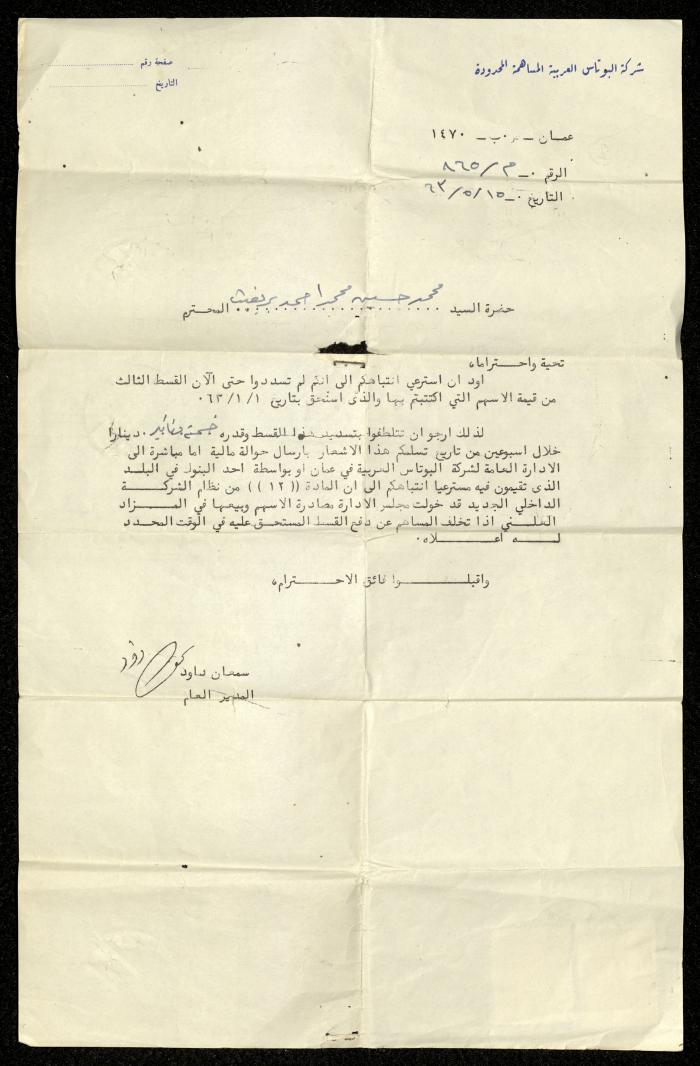 شركة البوتاس العربية المساهمة المحدودة
صفحة رقم
التاريخ
عمان ـ ص.ب ـ ١٤٧٠
الرقم ـ م/٨٦٥
التاريخ ـ ٦٣/٥/١٥
حضرة السيد محمد حسين محمد احمد المحترم
تحية واحتراما،
اود ان استرعي انتباهكم الى انكم لم تسددوا حتى الآن القسط الثالث
من قيمة الاسهم التي اكتتبتم بها والذى استحق بتاريخ ٦٣/١/١.
لذلك ارجو ان تتلطفوا بتسديد هذا القسط وقدره خمسة دنانير دينارا
خلال اسبوعين من تاريخ تسلمكم هذا الاشعار بارسال حوالة مالية اما مباشرة الى
الادارة العامة لشركة البوتاس العربية في عمان او بواسطة احد البنوك في البلد
الذى تقيمون فيه مسترعيا انتباهكم الى ان المادة ((١٢)) من نظام الشركة
الداخلي الجديد قد خولت مجلس الادارة مصادرة الاسهم وبيعها في المزاد
العلني اذا تخلف المساهم عن دفع القسط المستحق عليه في الوقت المحدد
له اعلاه.
واقبلوا فائق الاحترام،
سمعان داود
المدير العام